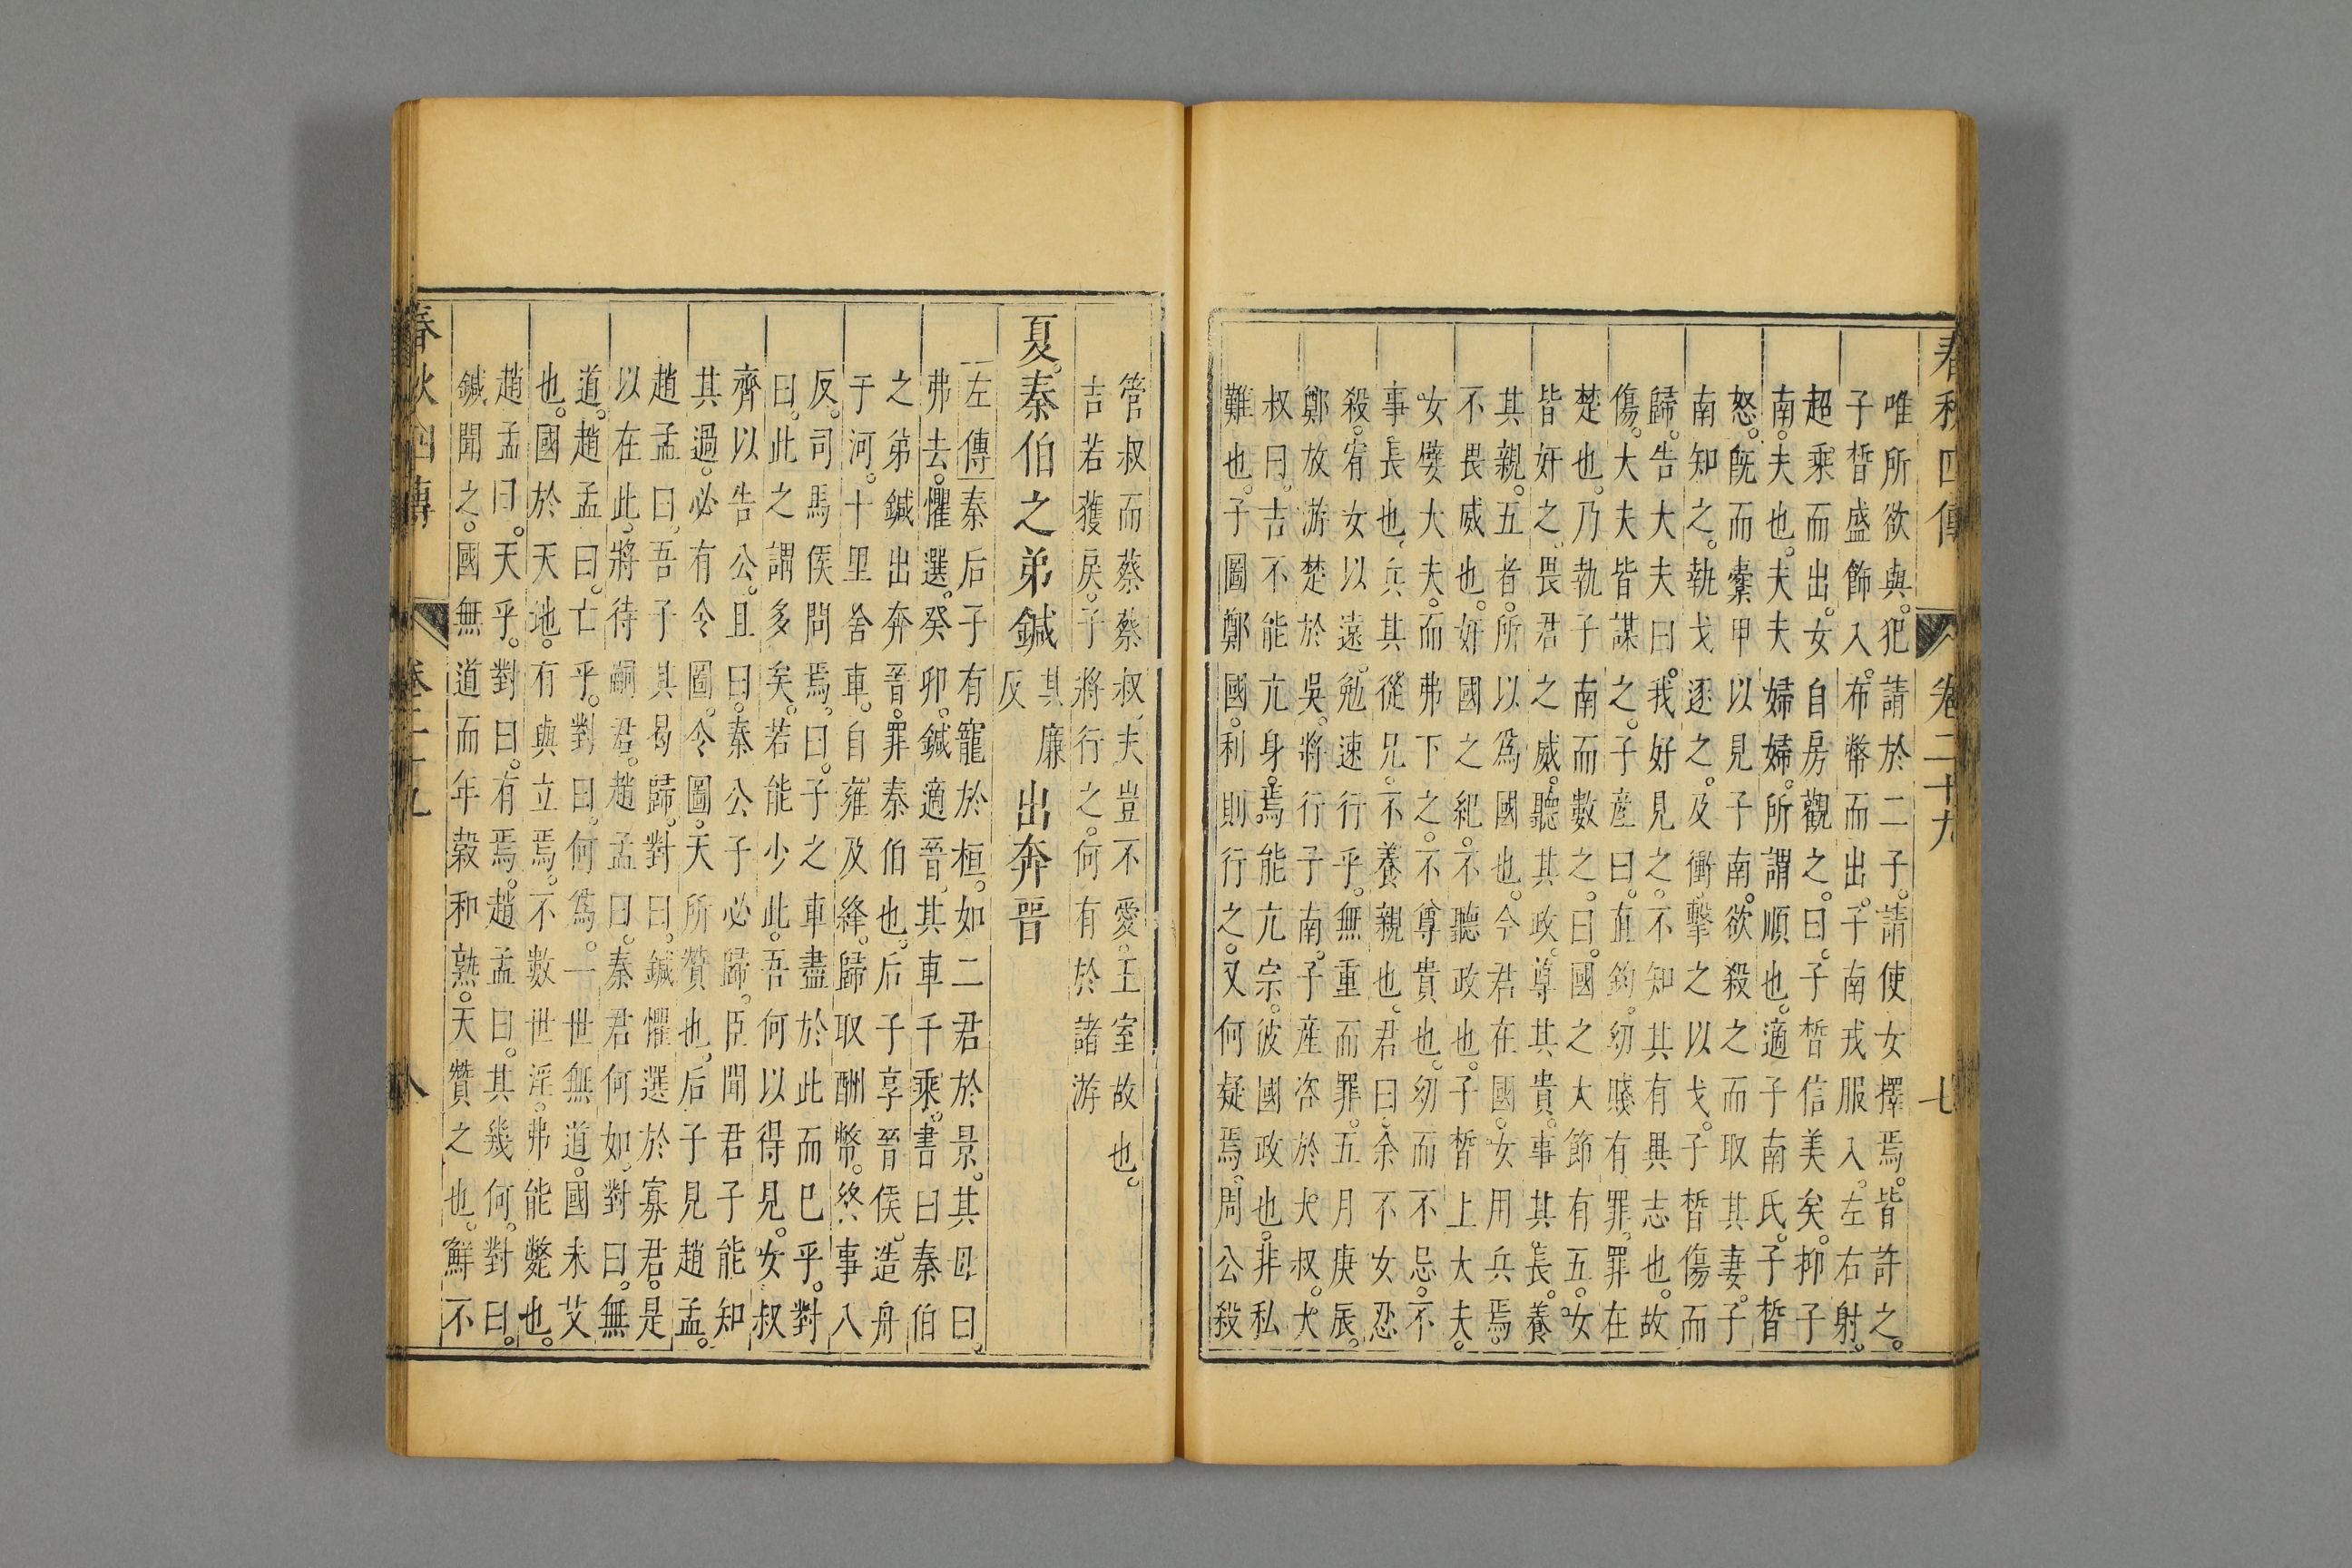 春秋四傳 卷二十九 七
唯所欲與。犯請於二子。請使女擇焉。皆許之。
子晳盛飾入。布幣而出。子南戎服入。左右射。
超乘而出。女自房觀之。曰。子晳信美矣。抑子
南。夫也。夫夫婦婦。所謂順也。適子南氏。子晳
怒。旣而櫜甲以見子南。欲殺之而取其妻。子
南知之。執戈逐之。及衝。擊之以戈。子晳傷而
歸。告大夫曰。我好見之。不知其有異志也。故
傷。大夫皆謀之。子產曰。直鈞。幼賤有罪。罪在
楚也。乃執子南而數之。曰。國之大節有五。女
皆奸之。畏君之威。聽其政。尊其貴。事其長。養
其親。五者。所以爲國也。今君在國。女用兵焉。
不畏威也。奸國之紀。不聽政也。子晳上大夫。
女嬖大夫。而弗下之。不尊貴也。幼而不忌。不
事長也。兵其從兄。不養親也。君曰。余不女忍
殺。宥女以遠。勉。速行乎。無重而罪。五月庚辰。
鄭放游楚於吳。將行子南。子產咨於大叔。大
叔曰。吉不能亢身。焉能亢宗。彼國政也。非私
難也。子圖鄭國。利則行之。又何疑焉。周公殺
管叔而蔡蔡叔。夫豈不愛。王室故也。
吉若獲戾。子將行之。何有於諸游
夏。秦伯之弟鍼其廉反出奔晉
左傳秦后子有寵於桓。如二君於景。其母曰。
弗去。懼選。癸卯。鍼適晉。其車千乘。書曰秦伯
之弟鍼出奔晉。罪秦伯也。后子享晉侯。造舟
于河。十里舍車。自雍及絳。歸取酬幣。終事八
反。司馬侯問焉。曰。子之車盡於此而已乎。對
曰。此之謂多矣。若能少此。吾何以得見。女叔
齊以告公。且曰。秦公子必歸。臣聞君子能知
其過。必有令圖。令圖。天所贊也。后子見趙孟。
趙孟曰。吾子其曷歸。對曰。鍼懼選於寡君。是
以在此。將待嗣君。趙孟曰。秦君何如。對曰。無
道。趙孟曰。亡乎。對曰。何爲。一世無道。國未艾
也。國於天地。有與立焉。不數世淫。弗能斃也。
趙孟曰。天乎。對曰。有焉。趙孟曰。其幾何。對曰。
鍼聞之。國無道而年穀和熟。天贊之也。鮮不
春秋四傳 卷二十九 八